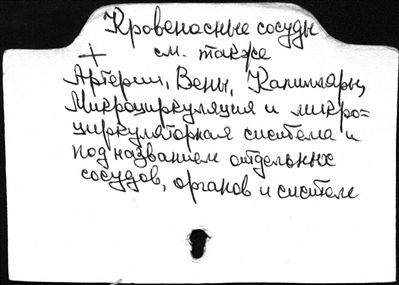 Кровеносные сосуды
см. также
Артерии, Вены, Капилляры,
Микроциркуляция и микро=
циркуляторная система и
под названием отдельных
сосудов, органов и систем